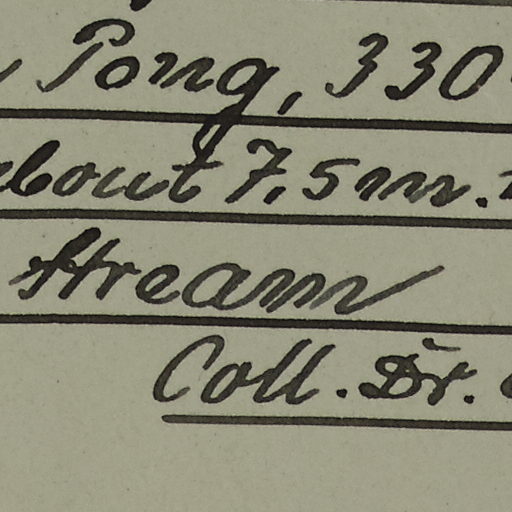 Pong, 330
bout 7,5 m.
stream
Coll. Dr.